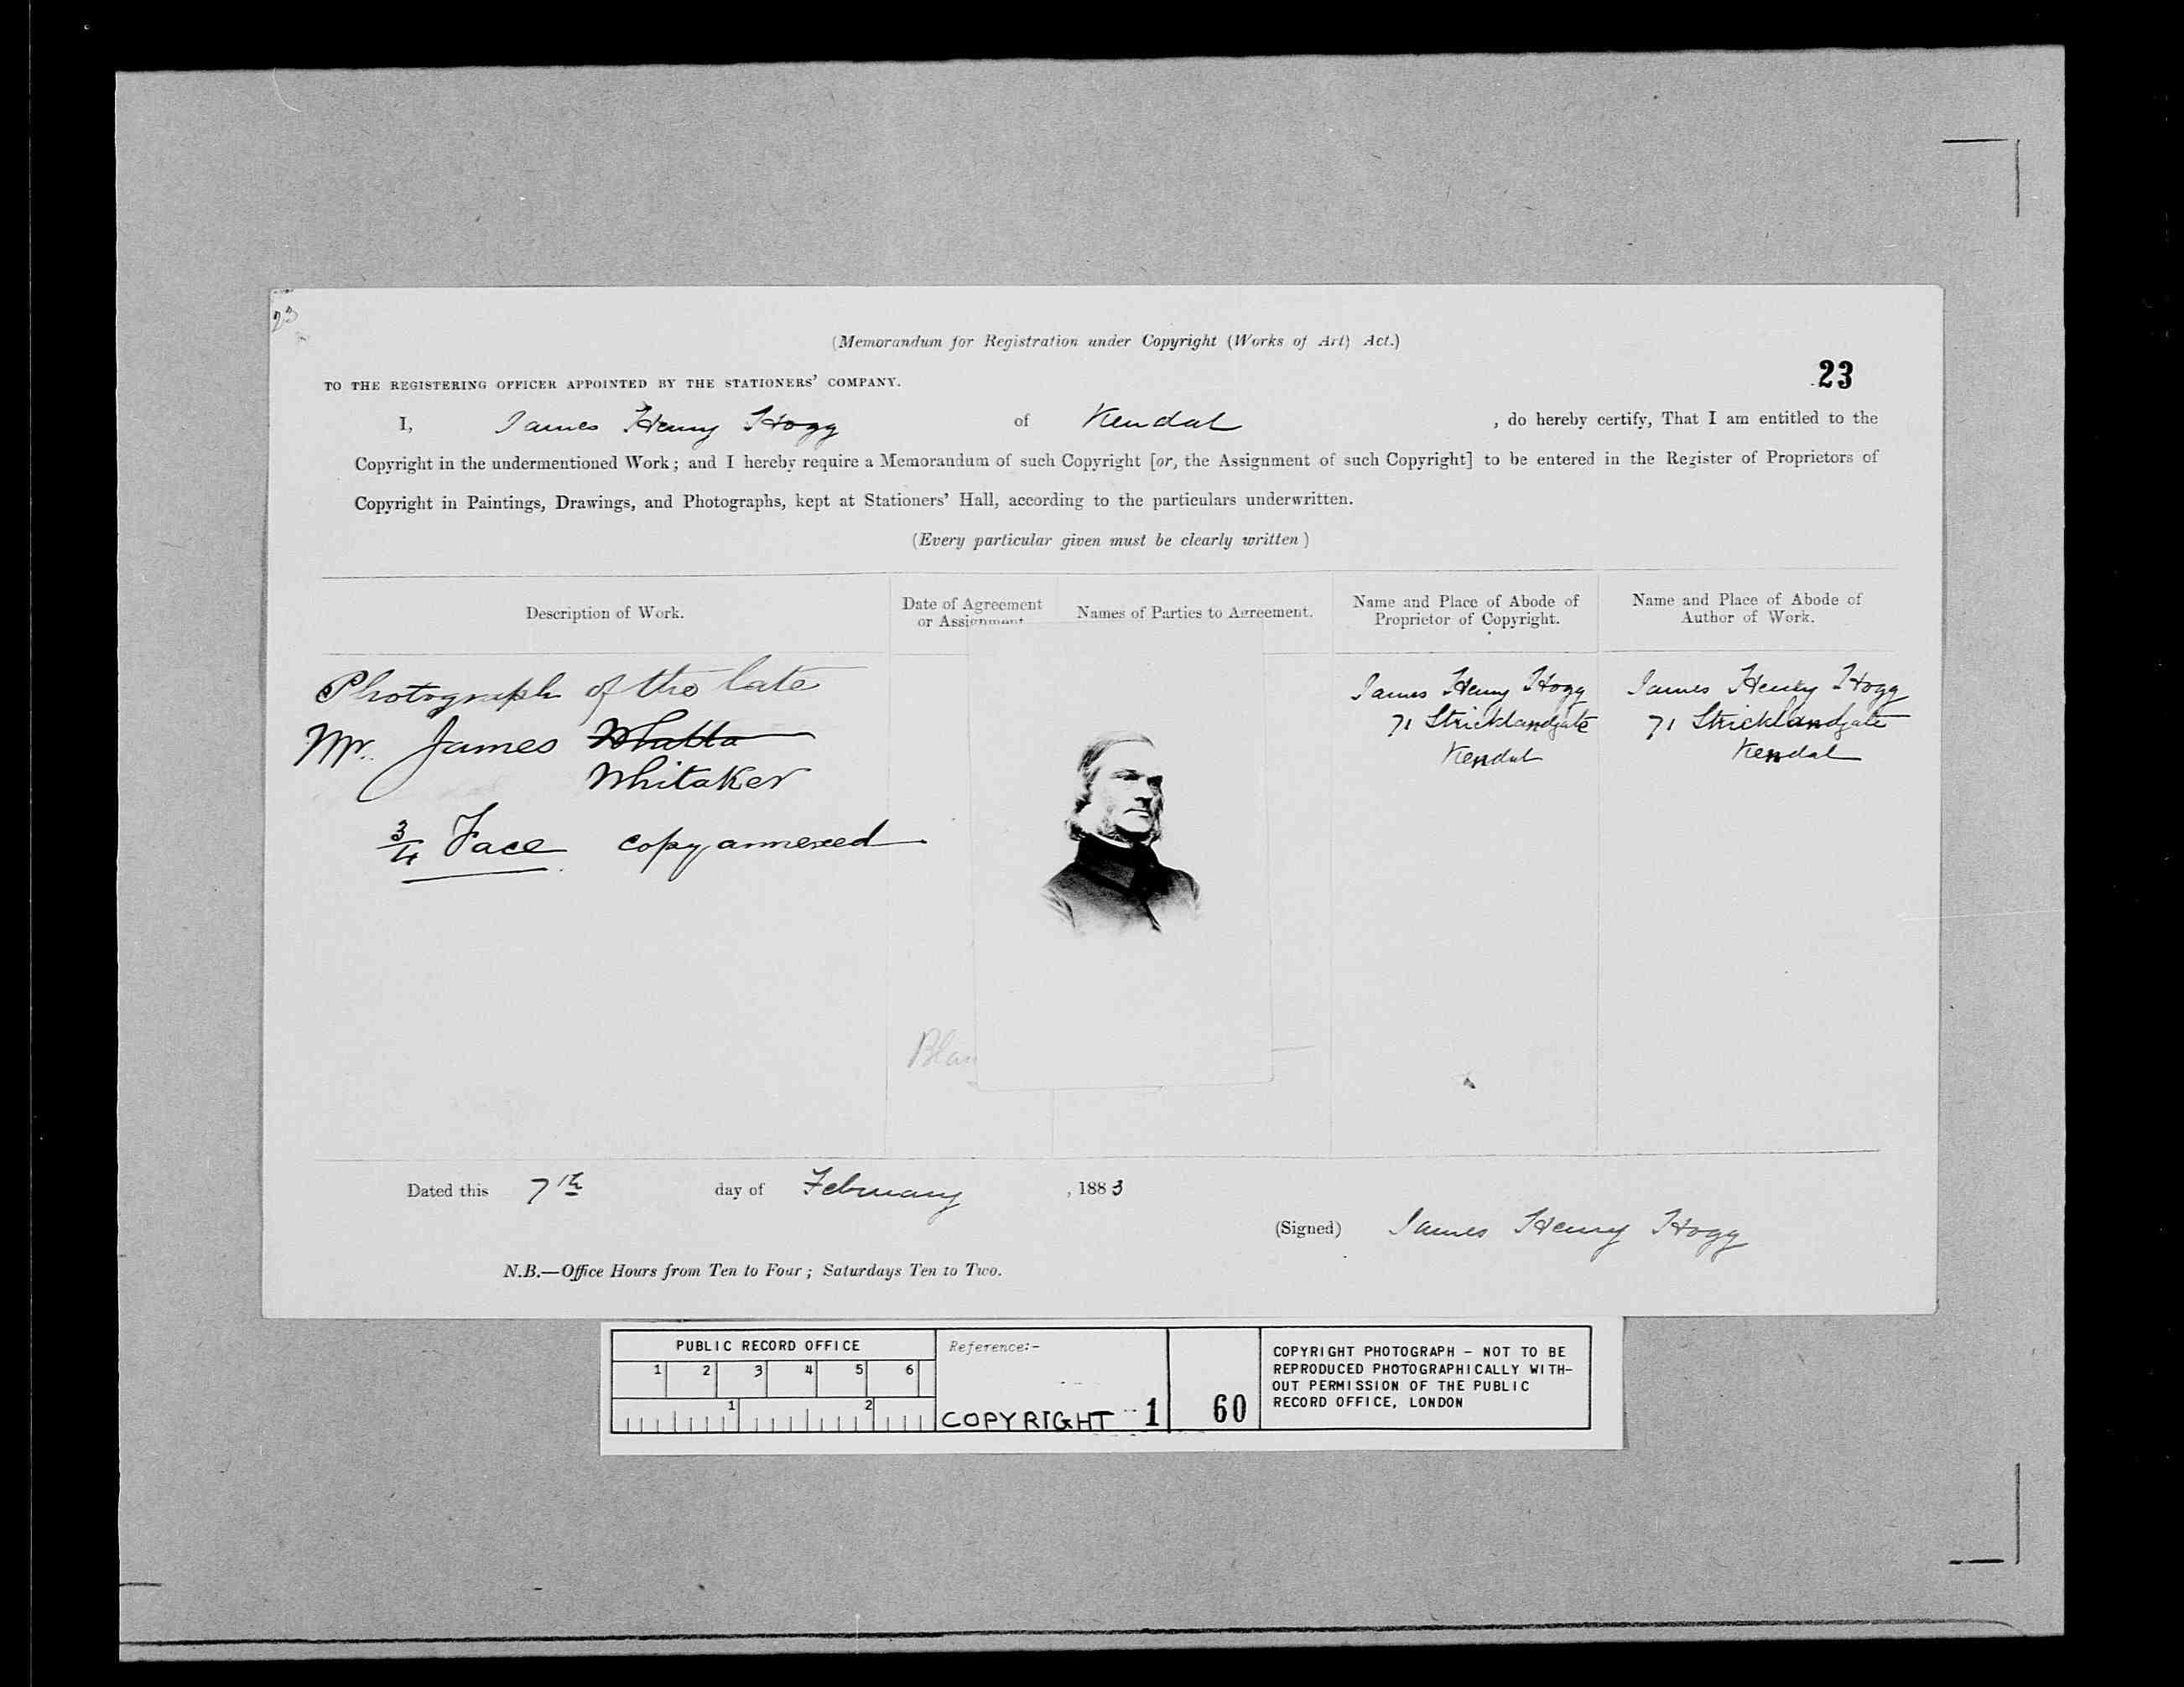 23
(Memorandum for Registration under Copyright (Works of Art) Act.)
23
TO THE REGISTERING OFFICER APPOINTED BY THE STATIONERS' COMPANY.
I, James Henry Hogg of Kendal , do hereby certify, That I am entitled to the
Copyright in the undermentioned Work; and I hereby require a Memorandum of such Copyright [or, the Assignment of such Copyright] to be entered in the Register of Proprietors of
Copyright in Paintings, Drawings, and Photographs, kept at Stationers' Hall, according to the particulars underwritten.
(Every particular given must be clearly written)
Description of Work.
Photograph of the late
Mr. James
Whitaker
3/4 Face copy annexed
Date of Agreement
or Assignment
Names of Parties to Agreement.
Name and Place of Abode of
Proprietor of Copyright.
James Henry Hogg
71 Stricklandgate
Kendal
Name and Place of Abode of
Author of Work.
James Henry Hogg
71 Stricklandgate
Kendal
Dated this 7th day of February , 1883
(Signed) James Henry Hogg
N.B.—Office Hours from Ten to Four; Saturdays Ten to Two.
PUBLIC RECORD OFFICE
1 2 3 4 5 6
1 2
Reference:-
COPYRIGHT 1 60
COPYRIGHT PHOTOGRAPH - NOT TO BE
REPRODUCED PHOTOGRAPHICALLY WITH-
OUT PERMISSION OF THE PUBLIC
RECORD OFFICE, LONDON